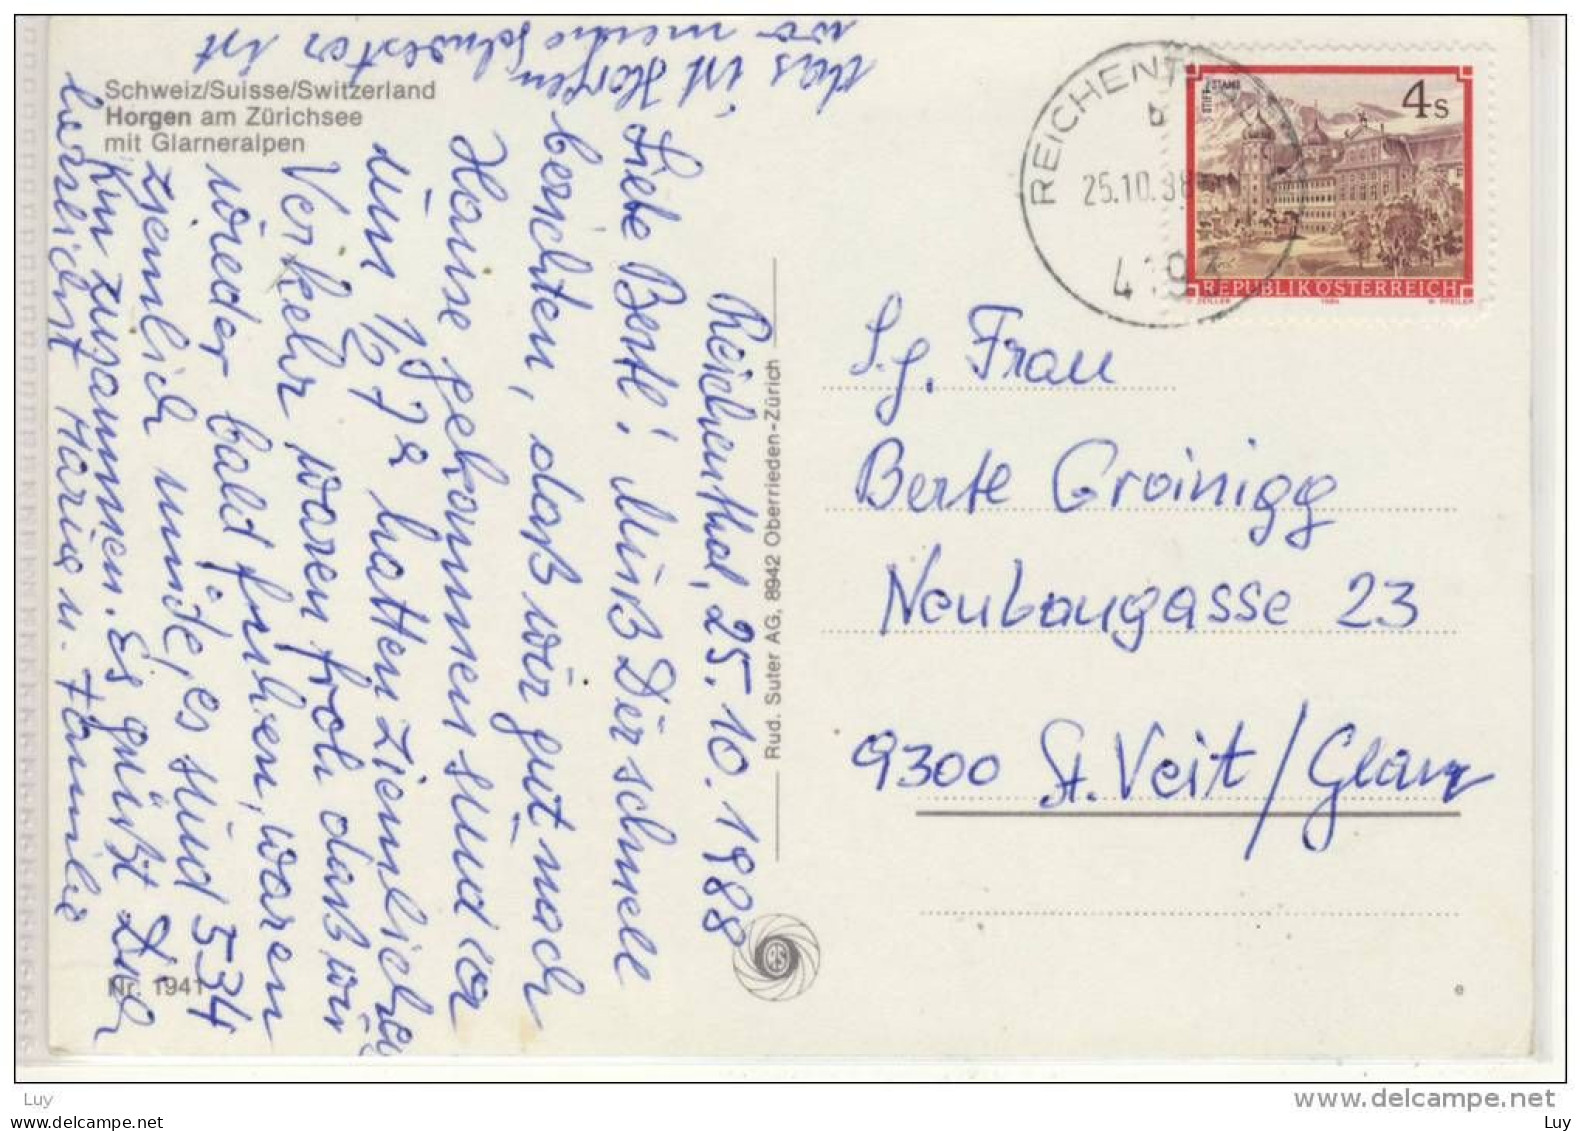 Schweiz/Suisse/Switzerland
Horgen am Zürichsee
mit Glarneralpen
Das ist Horgen,
wo meine Schwester ist
Reichenthal, 25.10.1988
Liebe Bertl! Muß Dir schnell
berichten, daß wir gut nach
Hause gekommen sind ca
um 1/2 7 h hatten ziemlichen
Verkehr waren froh daß wir
wieder bald fuhren, waren
ziemlich müde, es sind 534
km zusammen. Es grüßt Dich
herzlichst Maria u. Familie
Nr. 1941
Rud. Suter AG, 8942 Oberrieden-Zürich
RS
REICHENTH
b
25.10.88
419
STIFT STAMS
4 S
REPUBLIK ÖSTERREICH
O. ZEILLER 1984 W. PFEILER
S.g. Frau
Bertl Groinigg
Neubaugasse 23
9300 St. Veit/Glan
e
Luy
www.delcampe.net
Luy
Luy